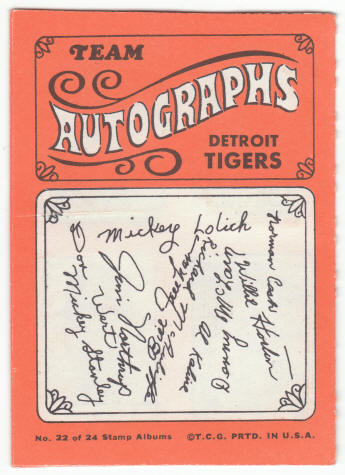 TEAM
AUTOGRAPHS
DETROIT
TIGERS
Mickey Lolich
Norman Cash
Willie Horton
Denny McLain
Al Kaline
Jim Northrup
Don Wert
Mickey Stanley
No. 22 of 24 Stamp Albums ©T.C.G. PRTD. IN U.S.A.